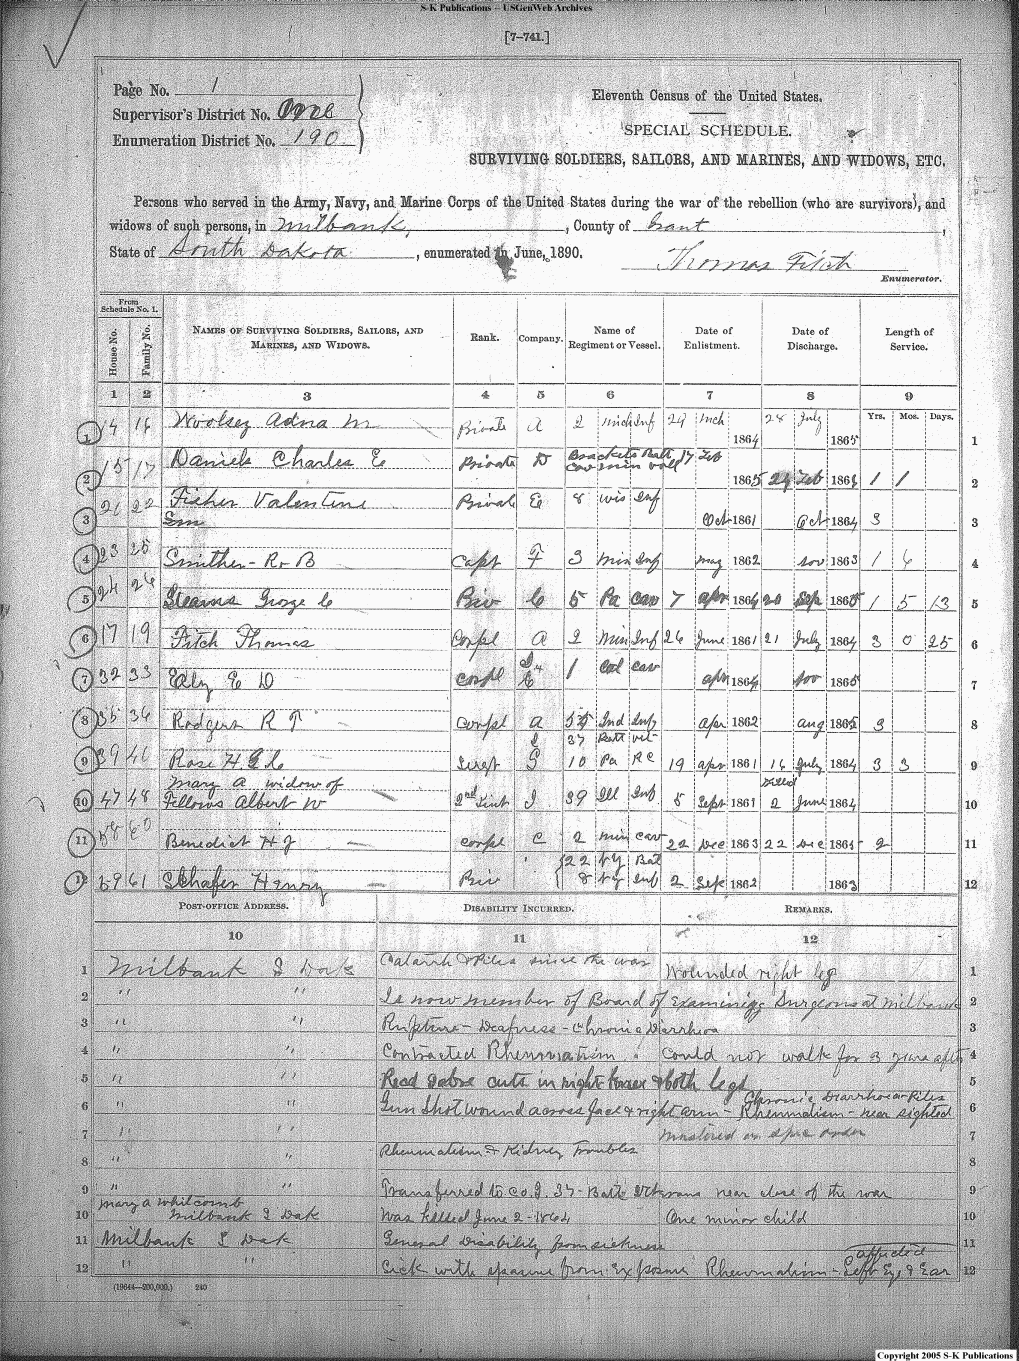 S-K Publications – USGenWeb Archives
[7–741.]
Page No. 1
Supervisor's District No. One
Enumeration District No. 190
Eleventh Census of the United States.
SPECIAL SCHEDULE.
SURVIVING SOLDIERS, SAILORS, AND MARINES, AND WIDOWS, ETC.
Persons who served in the Army, Navy, and Marine Corps of the United States during the war of the rebellion (who are survivors), and
widows of such persons, in Milbank, , County of Grant ,
State of South Dakota , enumerated in June, 1890. Thomas Fitch
Enumerator.
From Schedule No. 1.
House No. Family No. NAMES OF SURVIVING SOLDIERS, SAILORS, AND MARINES, AND WIDOWS. Rank. Company. Name of Regiment or Vessel. Date of Enlistment. Date of Discharge. Length of Service.
1 2 3 4 5 6 7 8 9
Yrs. Mos. Days.
1 14 16 Woolsey Adna M Private A 2 Mich Inf 29 Mch 1864 28 July 1865 1
2 15 17 Daniels Charles E Private D Brackets Batt Cav Min Voll 17 Feb 1865 24 Feb 1866 1 1 2
3 21 22 Fisher Valentine Private E 8 Wis Inf Oct 1861 Oct 1864 3 3
4 23 25 Smither R. B Capt F 3 Min Inf May 1862 Nov 1863 1 6 4
5 24 26 Stearns George C Priv C 5 Pa Cav 7 Apr 1864 20 Sep 1865 1 5 13 5
6 17 19 Fitch Thomas Corpl A 2 Min Inf 26 June 1861 21 July 1864 3 0 25 6
7 32 33 Edly E D Corpl 1 Col Cav Apr 1864 Nov 1865 7
8 35 36 Rodgers R T Corpl A 55 Ind Inf Apr 1862 Aug 1865 3 8
I 37 Batt Vet
9 39 40 Rose H. G. C Sergt G 10 Pa RC 19 Apr 1861 16 July 1864 3 3 9
Mary A widow of Killed
10 47 48 Fellows Albert W 2nd Liut I 39 Ill Inf 5 Sept 1861 2 June 1864 10
11 58 60 Benedict H J Corpl C 2 Min Cav 22 Dec 1863 22 Dec 1865 2 11
22 NY Bat
12 59 61 Schafer Henry Priv 8 NY Inf 2 Sep 1862 1863 12
POST-OFFICE ADDRESS. DISABILITY INCURRED. REMARKS.
10 11 12
1 Milbank S Dak Catarrh & Piles since the war Wounded right leg 1
2 " " Is now member of Board of Examining Surgeons at Milbank 2
3 " " Rupture – Deafness – Chronic Diarrhoea 3
4 " " Contracted Rheumatism. Could not walk for 3 years after 4
5 " " Recd sabre cuts in right knee & both legs 5
Chronic Diarrhoea Piles
6 " " Gun Shot wound across face & right arm – Rheumatism – near sighted 6
7 " " Mustered on spec order 7
8 " " Rheumatism & Kidney Troubles 8
9 " " Transferred to Co. I. 37 – Batt Veterans near close of the war 9
Mary A Whitcomb
10 Milbank S Dak Was killed June 2 – 1864 One minor child 10
11 Milbank S Dak General Disability from sickness 11
affected
12 " " Sick with spasms from exposure Rheumatism – Left Eye & Ear 12
(19644—200,000.) 240
Copyright 2005 S-K Publications